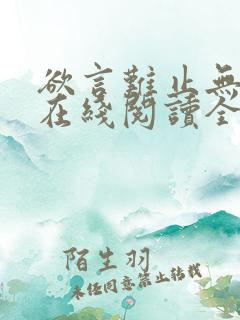 欲言難止無
在綫閱讀全
陌生羽
未經同意禁止轉載